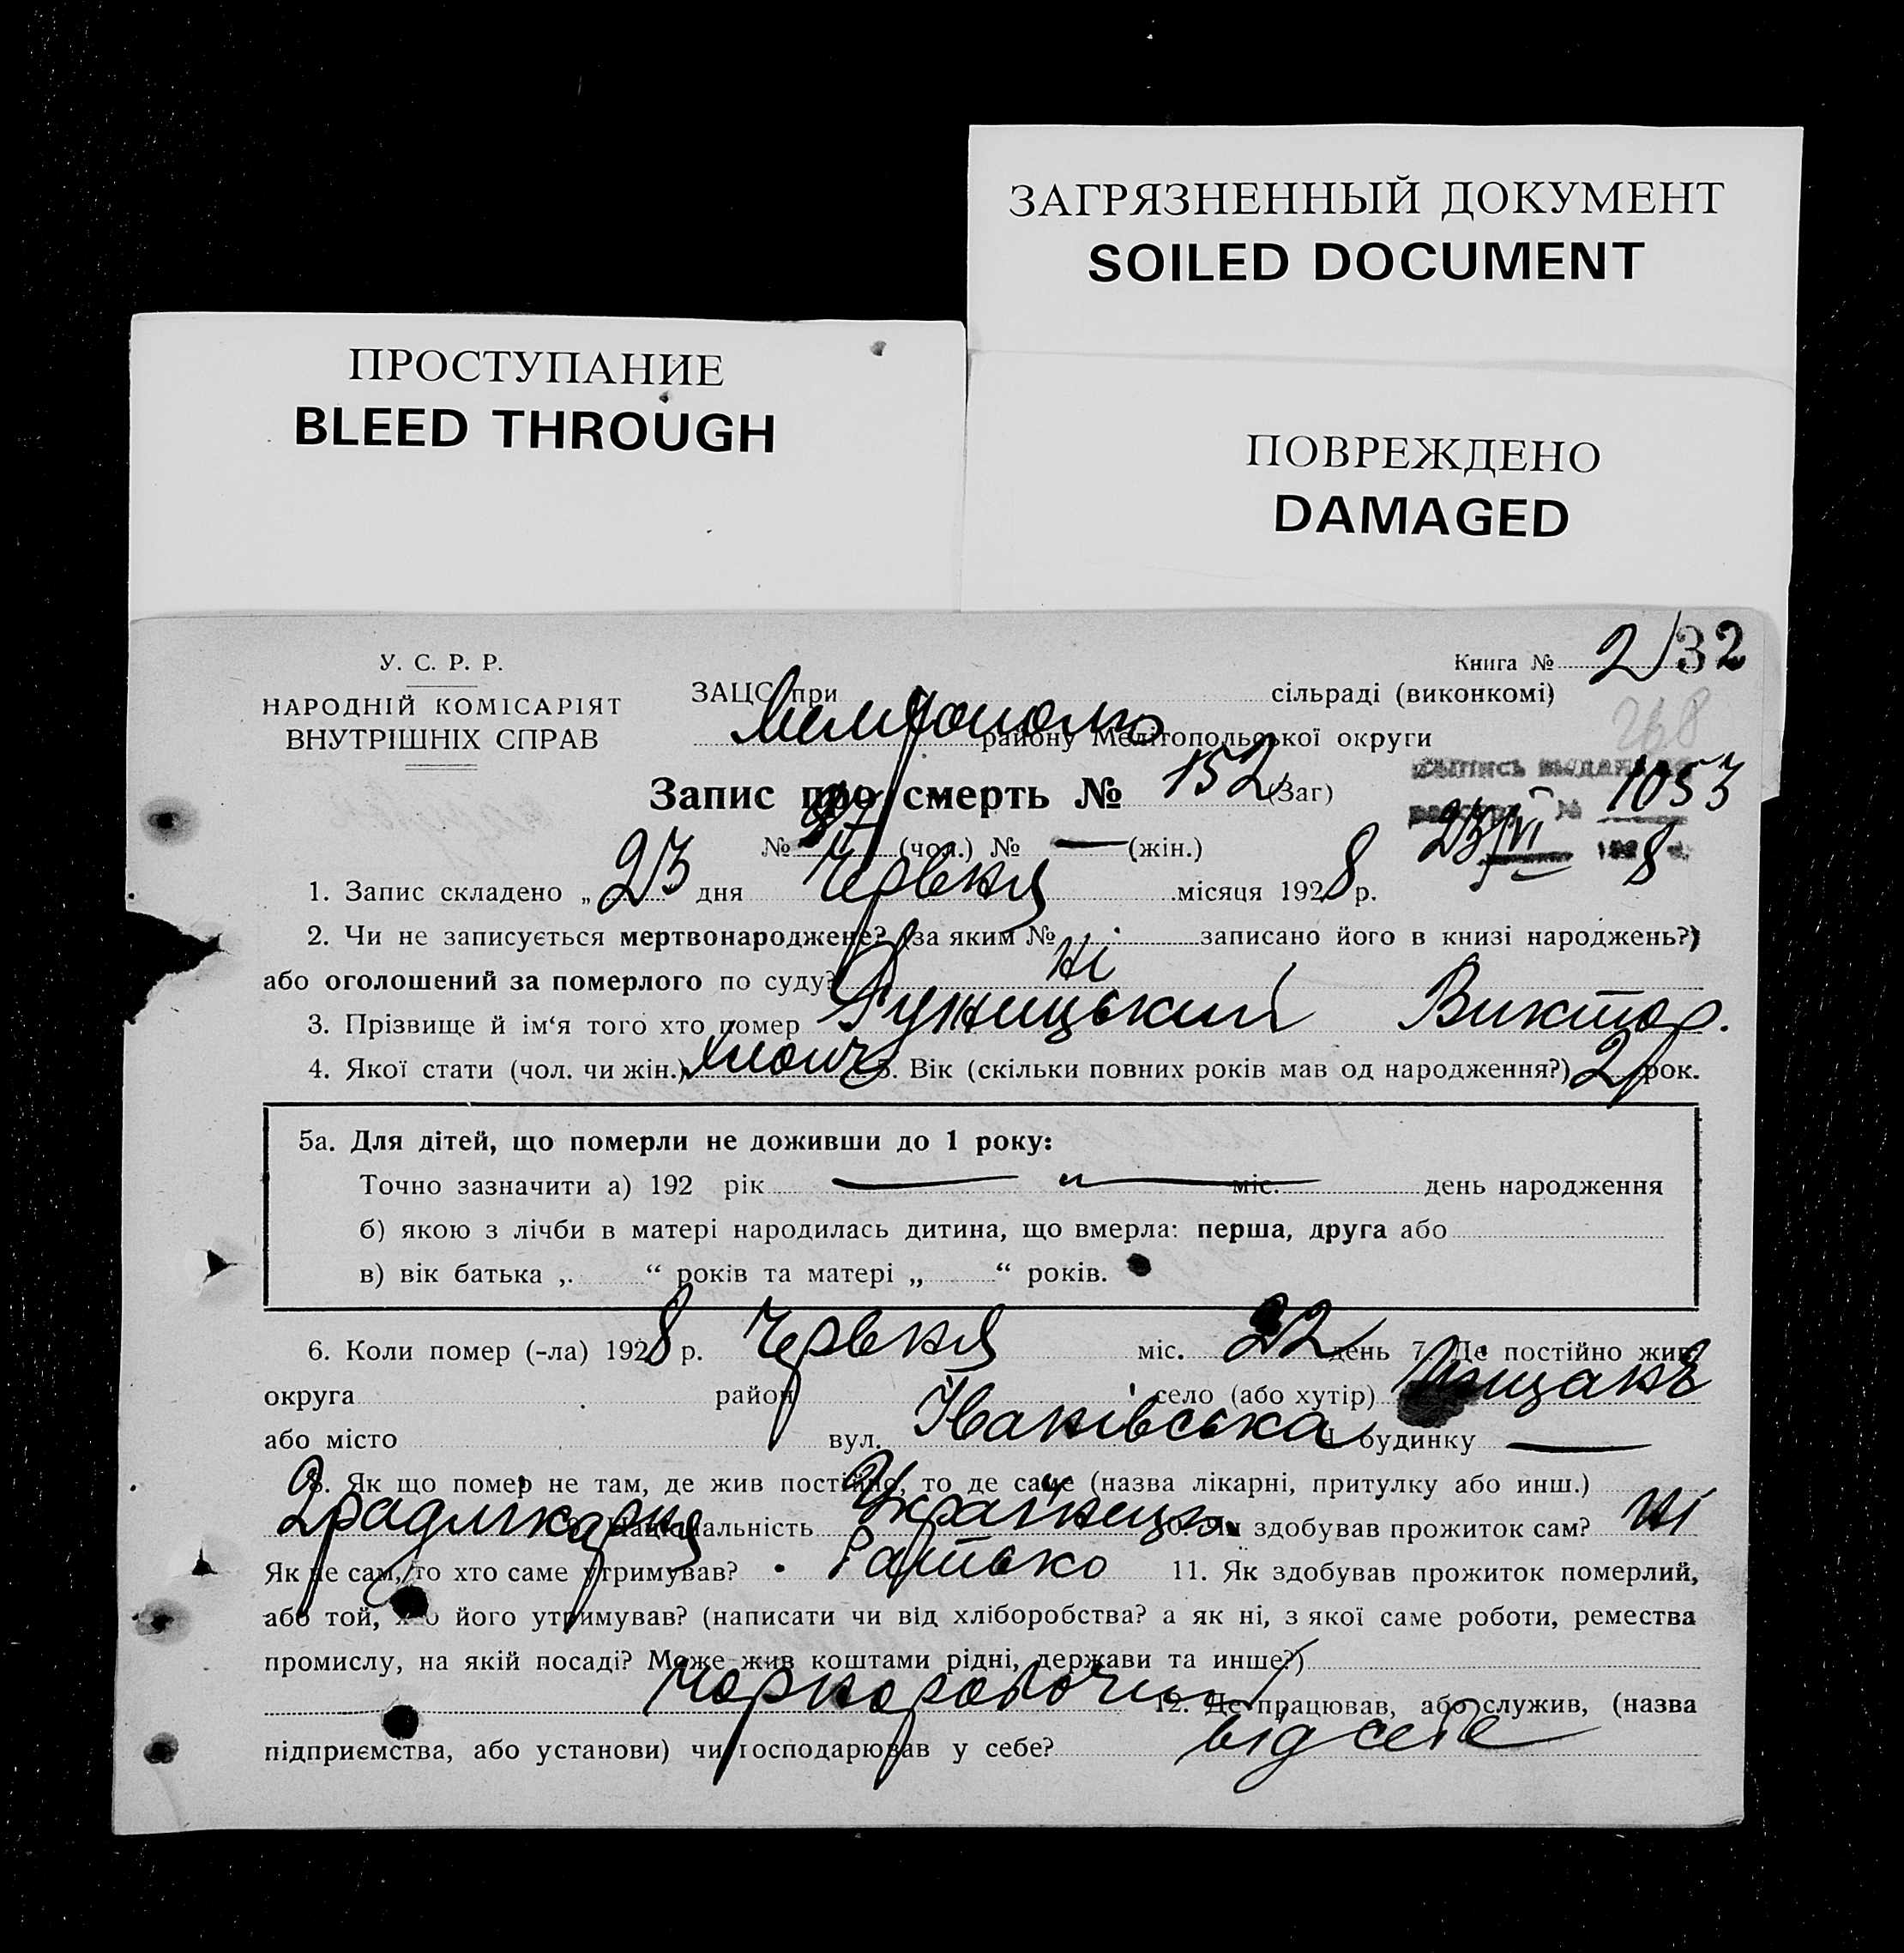 ЗАГРЯЗНЕННЫЙ ДОКУМЕНТ
SOILED DOCUMENT
ПРОСТУПАНИЕ
BLEED THROUGH
ПОВРЕЖДЕНО
DAMAGED
У. С. Р. Р.
НАРОДНІЙ КОМІСАРІЯТ
ВНУТРІШНІХ СПРАВ
Книга № 2/32
ЗАЦС при сільраді (виконкомі)
268
району Мелітопольської округи
Запис про смерть № 152 (Заг)
выпись выдана
№ 1053
23/VI 1928
№ (чол.) № — (жін.)
1. Запис складено „23 дня Червня місяця 1928 р.
2. Чи не записується мертвонароджене? (за яким № записано його в книзі народжень?)
або оголошений за померлого по суду? ні
3. Прізвище й ім‘я того хто помер Ружицький Виктор.
4. Якої стати (чол. чи жін.) 5. Вік (скільки повних років мав од народження?) 2 рок.
5а. Для дітей, що померли не доживши до 1 року:
Точно зазначити а) 192 рік — міс. день народження
б) якою з лічби в матері народилась дитина, що вмерла: перша, друга або
в) вік батька „ “ років та матері „ “ років.
6. Коли помер (-ла) 1928 р. Червня міс. 22 день 7. Де постійно жив
округа район село (або хутір)
або місто вул. Іванівська № будинку —
8. Як що помер не там, де жив постійно, то де саме (назва лікарні, притулку або инш.)
Градлікарня 9. Національність Українець 10. Чи здобував прожиток сам? ні
Як не сам, то хто саме утримував? Батько 11. Як здобував прожиток померлий,
або той, хто його утримував? (написати чи від хліборобства? а як ні, з якої саме роботи, ремества
промислу, на якій посаді? Може жив коштами рідні, держави та инше?)
Чорноробочий 12. Де працював, або служив, (назва
підприємства, або установи) чи господарював у себе? від себе